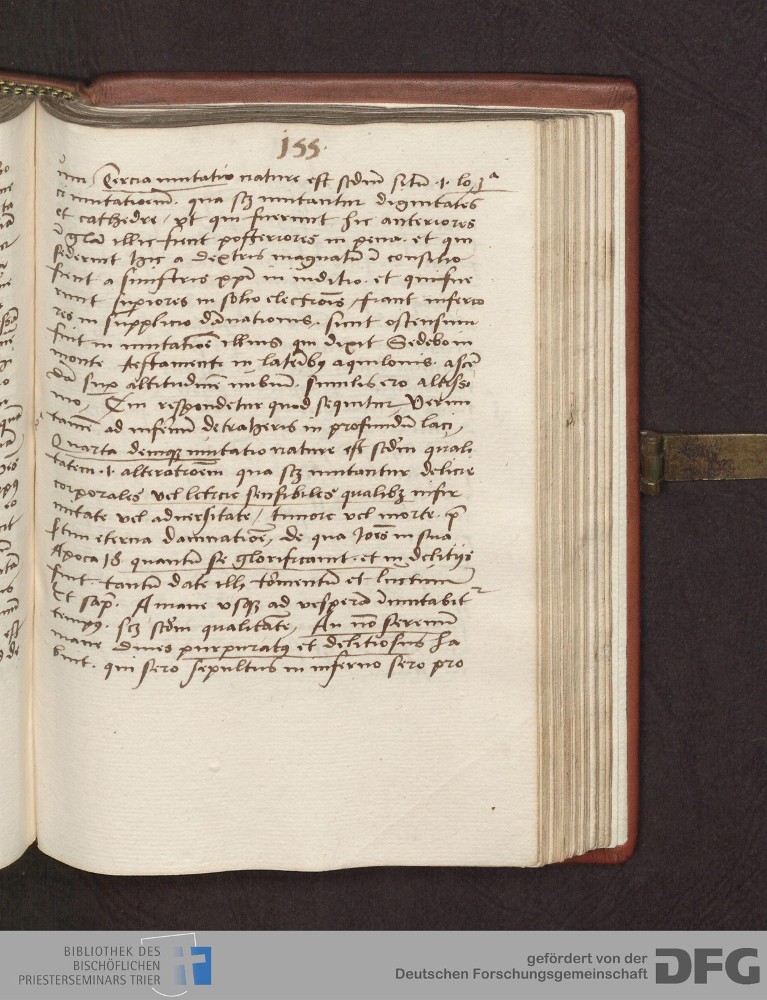 155.
Tercia mutatio nature est scdm̄ sitū .i. lo
mutationem. qua scz mutantur dignitates
et cathedre, vt qui fuerunt hic anteriores
ī glā illic fient posteriores in pena. et qui
sederunt hic a dextris magnatū ī consilio
fient a sinistris xpi in iuditio. et qui fue
runt supiores in solio electiōis, fiant inferio
res in supplicio dānationis. sicut ostensum
fuit in mutatiōe illius qui dixit Sedebo in
monte testamenti in laterib⁹ aquilonis. ascē
dā sup altitudinē nubiū. similis ero altissi
mo, Cui respondetur quod sequitur, Verum
tamē ad infernū detraheris in profundū laci,
Quarta deniqz mutatio nature est scdm̄ quali
tatem .i. alterationem qua scz mutantur delicie
corporales vel leticie sensibiles qualibz infir
mitate vel aduersitate, timore vel morte.
eterna damnatiōe, de qua Ioēs in sua
Apoca 18 quantū se glorificauit. et in delitijs
fuit tantū date illi tormentū et luctum
Et sap. A mane vsqz ad vesperā īmutabit
temp⁹. scz scdm̄ qualitatē, An nō serenum
mane diues purpurat⁹ et delitiosus ha
buit. qui sero sepultus in inferno sero pro
BIBLIOTHEK DES
BISCHÖFLICHEN
PRIESTERSEMINARS TRIER
gefördert von der
Deutschen Forschungsgemeinschaft
DFG